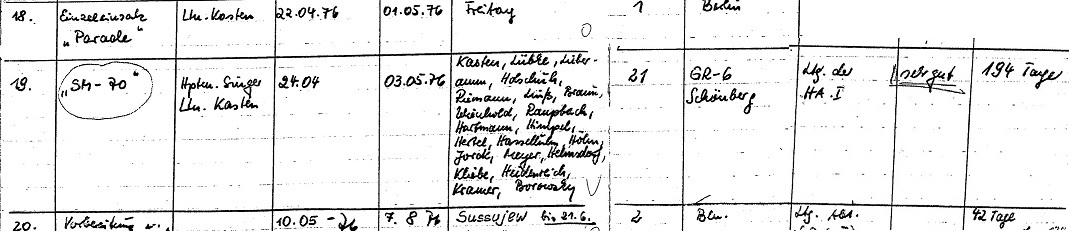 18. Einzeleinsatz Ltn. Kasten 22.04.76 01.05.76 Freitag 1 Berlin
"Parade"
19. "SM-70" Hptm. Singer 24.04 03.05.76 Kasten, Lübke, Lieber- 21 GR-6 Ltg. der sehr gut 194 Tage
Ltn. Kasten amm, Holschuh, Schönberg HA. I
Riemann, Linß, Braun,
Wienhold, Raupbach,
Hartmann, Himpel,
Hertel, Hasselluhn, Höhn,
Jorde, Meyer, Helmsdorf,
Kliebe, Heidenreich,
Kramer, Borowsky
20. Vorbereitung 10.05 - 76 7. 8 76 Sussujew bis 21.6. 2 Bln. Ltg. Abt. 42 Tage